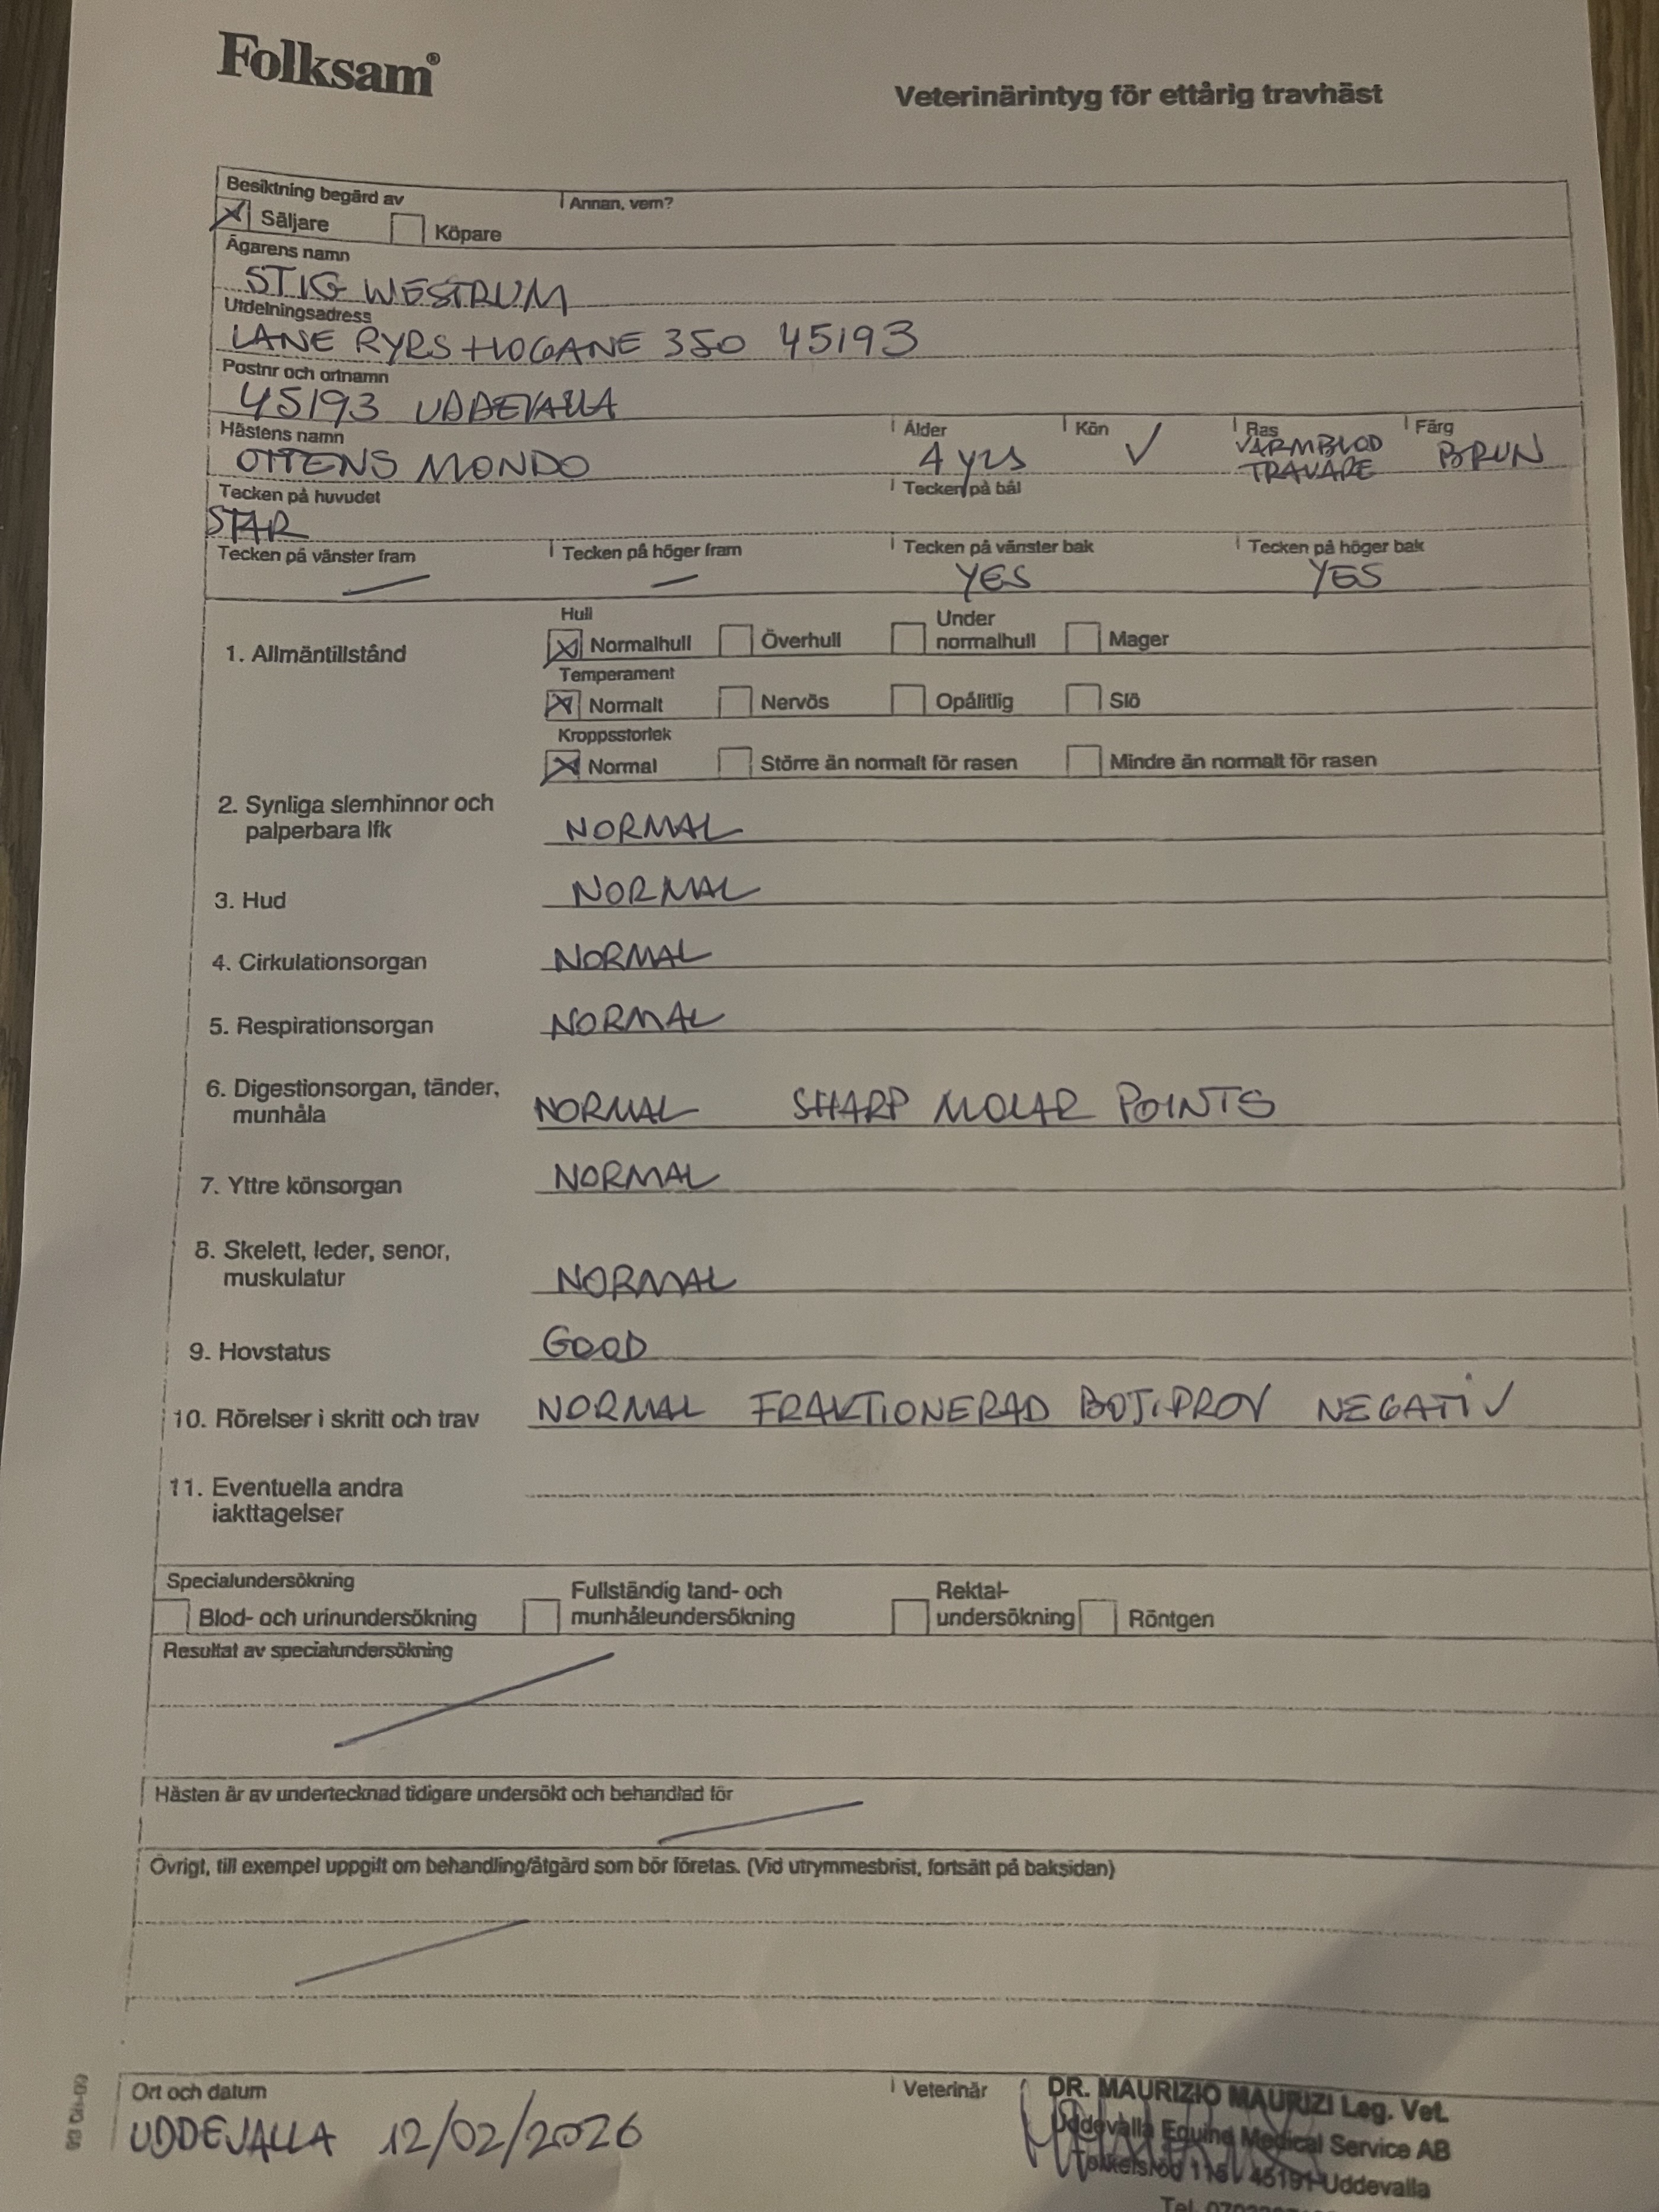 Folksam®
Veterinärintyg för ettårig travhäst
Besiktning begärd av
Annan, vem?
Säljare
Köpare
Ägarens namn
STIG WESTRUM
Utdelningsadress
LANE RYRS HOGANE 350 45193
Postnr och ortnamn
45193 UDDEVALLA
Hästens namn
Ålder
Kön
Ras
Färg
OTTENS MONDO
4 yrs
VARMBLOD
TRAVARE
BRUN
Tecken på huvudet
Tecken på bål
STAR
Tecken på vänster fram
Tecken på höger fram
Tecken på vänster bak
Tecken på höger bak
YES
YES
1. Allmäntillstånd
Hull
Normalhull
Överhull
Under normalhull
Mager
Temperament
Normalt
Nervös
Opålitlig
Slö
Kroppsstorlek
Normal
Större än normalt för rasen
Mindre än normalt för rasen
2. Synliga slemhinnor och
palperbara lfk
NORMAL
3. Hud
NORMAL
4. Cirkulationsorgan
NORMAL
5. Respirationsorgan
NORMAL
6. Digestionsorgan, tänder,
munhåla
NORMAL SHARP MOLAR POINTS
7. Yttre könsorgan
NORMAL
8. Skelett, leder, senor,
muskulatur
NORMAL
9. Hovstatus
GOOD
10. Rörelser i skritt och trav
NORMAL FRAKTIONERAD BOJ.PROV NEGATIV
11. Eventuella andra
iakttagelser
Specialundersökning
Blod- och urinundersökning
Fullständig tand- och
munhåleundersökning
Rektal-
undersökning
Röntgen
Resultat av specialundersökning
Hästen är av undertecknad tidigare undersökt och behandlad för
Övrigt, till exempel uppgift om behandling/åtgärd som bör företas. (Vid utrymmesbrist, fortsätt på baksidan)
Ort och datum
UDDEVALLA 12/02/2026
Veterinär
DR. MAURIZIO MAURIZI Leg. Vet.
Uddevalla Equine Medical Service AB
45191 Uddevalla
Tel.